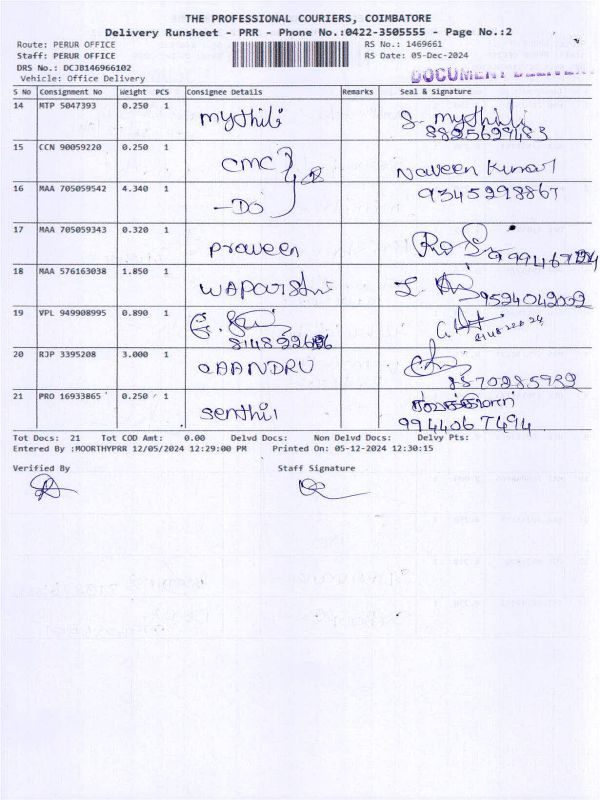 THE PROFESSIONAL COURIERS, COIMBATORE
Delivery Runsheet - PRR - Phone No.:0422-3505555 - Page No.:2
Route: PERUR OFFICE RS No.: 1469661
Staff: PERUR OFFICE RS Date: 05-Dec-2024
DRS No.: DCJB146966102
Vehicle: Office Delivery DOCUMENT DELIVERY
S No Consignment No Weight PCS Consignee Details Remarks Seal & Signature
14 MTP 5047393 0.250 1 Mythili S. mythili
8825629483
15 CCN 90059220 0.250 1 CMC Naveen Kumar
16 MAA 705059542 4.340 1 -Do 9345298867
17 MAA 705059343 0.320 1 Praveen
18 MAA 576163038 1.850 1 9524042002
19 VPL 949908995 0.890 1
20 RJP 3395208 3.000 1 8870285932
21 PRO 16933865 0.250 1 Senthil
9944067494
Tot Docs: 21 Tot COD Amt: 0.00 Delvd Docs: Non Delvd Docs: Delvy Pts:
Entered By :MOORTHYPRR 12/05/2024 12:29:00 PM Printed On: 05-12-2024 12:30:15
Verified By Staff Signature